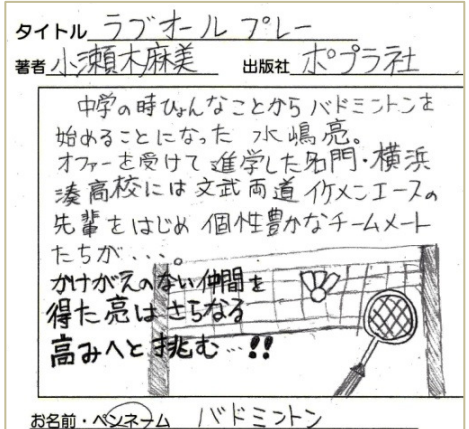 タイトル ラブオールプレー
著者 小瀬木麻美 出版社 ポプラ社
中学の時ひょんなことからバドミントンを
始めることになった 水嶋亮。
オファーを受けて進学した名門・横浜
湊高校には文武両道イケメンエースの
先輩をはじめ個性豊かなチームメート
たちが...。
かけがえのない仲間を
得た亮はさらなる
高みへと挑む…!!
お名前・ペンネーム バドミントン